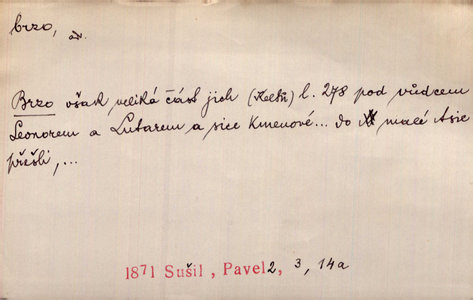 brzo, adv.
Brzo však veliká část jich (Keltů) l. 278 pod vůdcem
Leonorem a Lutarem a sice Kmenové... do malé Asie
přešli,...
1871 Sušil, Pavel 2, 3, 14a